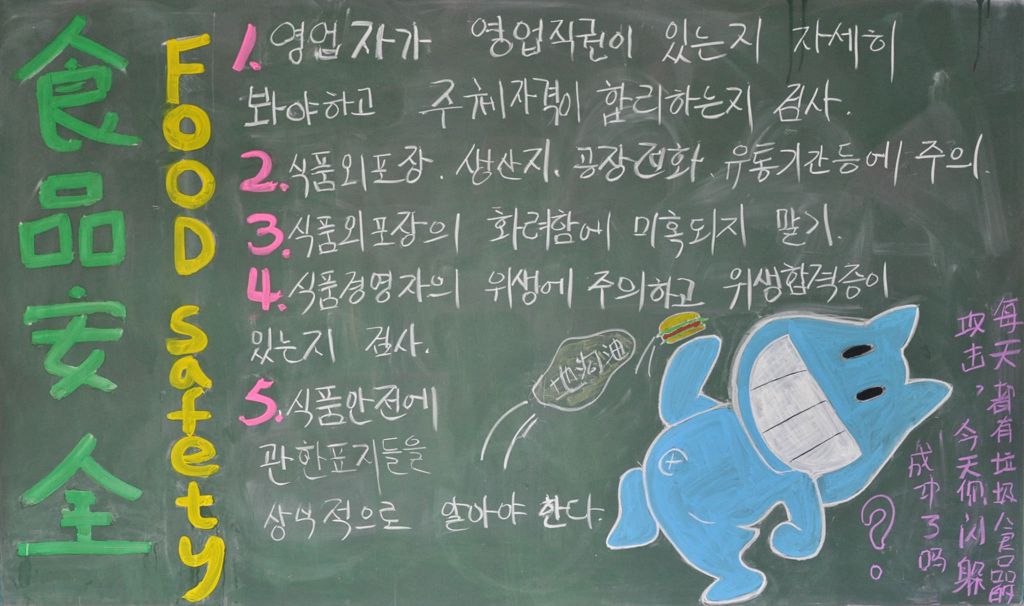 食品安全
FOOD safety
1. 영업자가 영업직권이 있는지 자세히
봐야하고 주체자격이 합리하는지 검사.
2. 식품외포장. 생산지. 공장전화. 유통기간등에 주의.
3. 식품외포장의 화려함에 미혹되지 말기.
4. 식품경영자의 위생에 주의하고 위생합격증이
있는지 검사.
5. 식품안전에
관한표지들을
상식적으로 알아야 한다.
地沟油
每天都有垃圾食品的
攻击，今天你闪躲
成功了吗
？